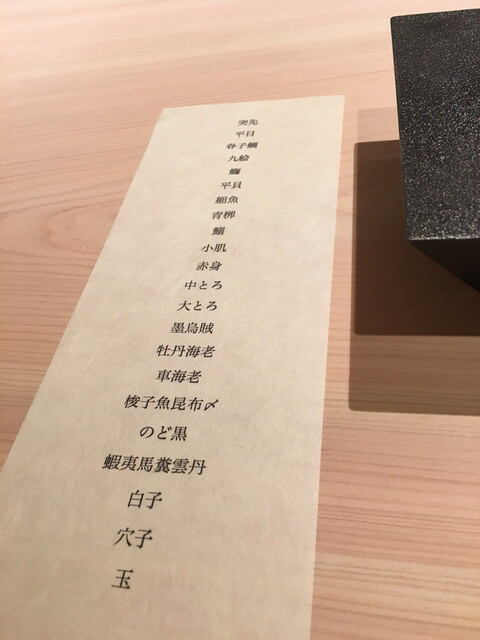 突先
平目
春子鯛
九絵
鰤
平貝
細魚
青柳
鰯
小肌
赤身
中とろ
大とろ
墨烏賊
牡丹海老
車海老
梭子魚昆布〆
のど黒
蝦夷馬糞雲丹
白子
穴子
玉